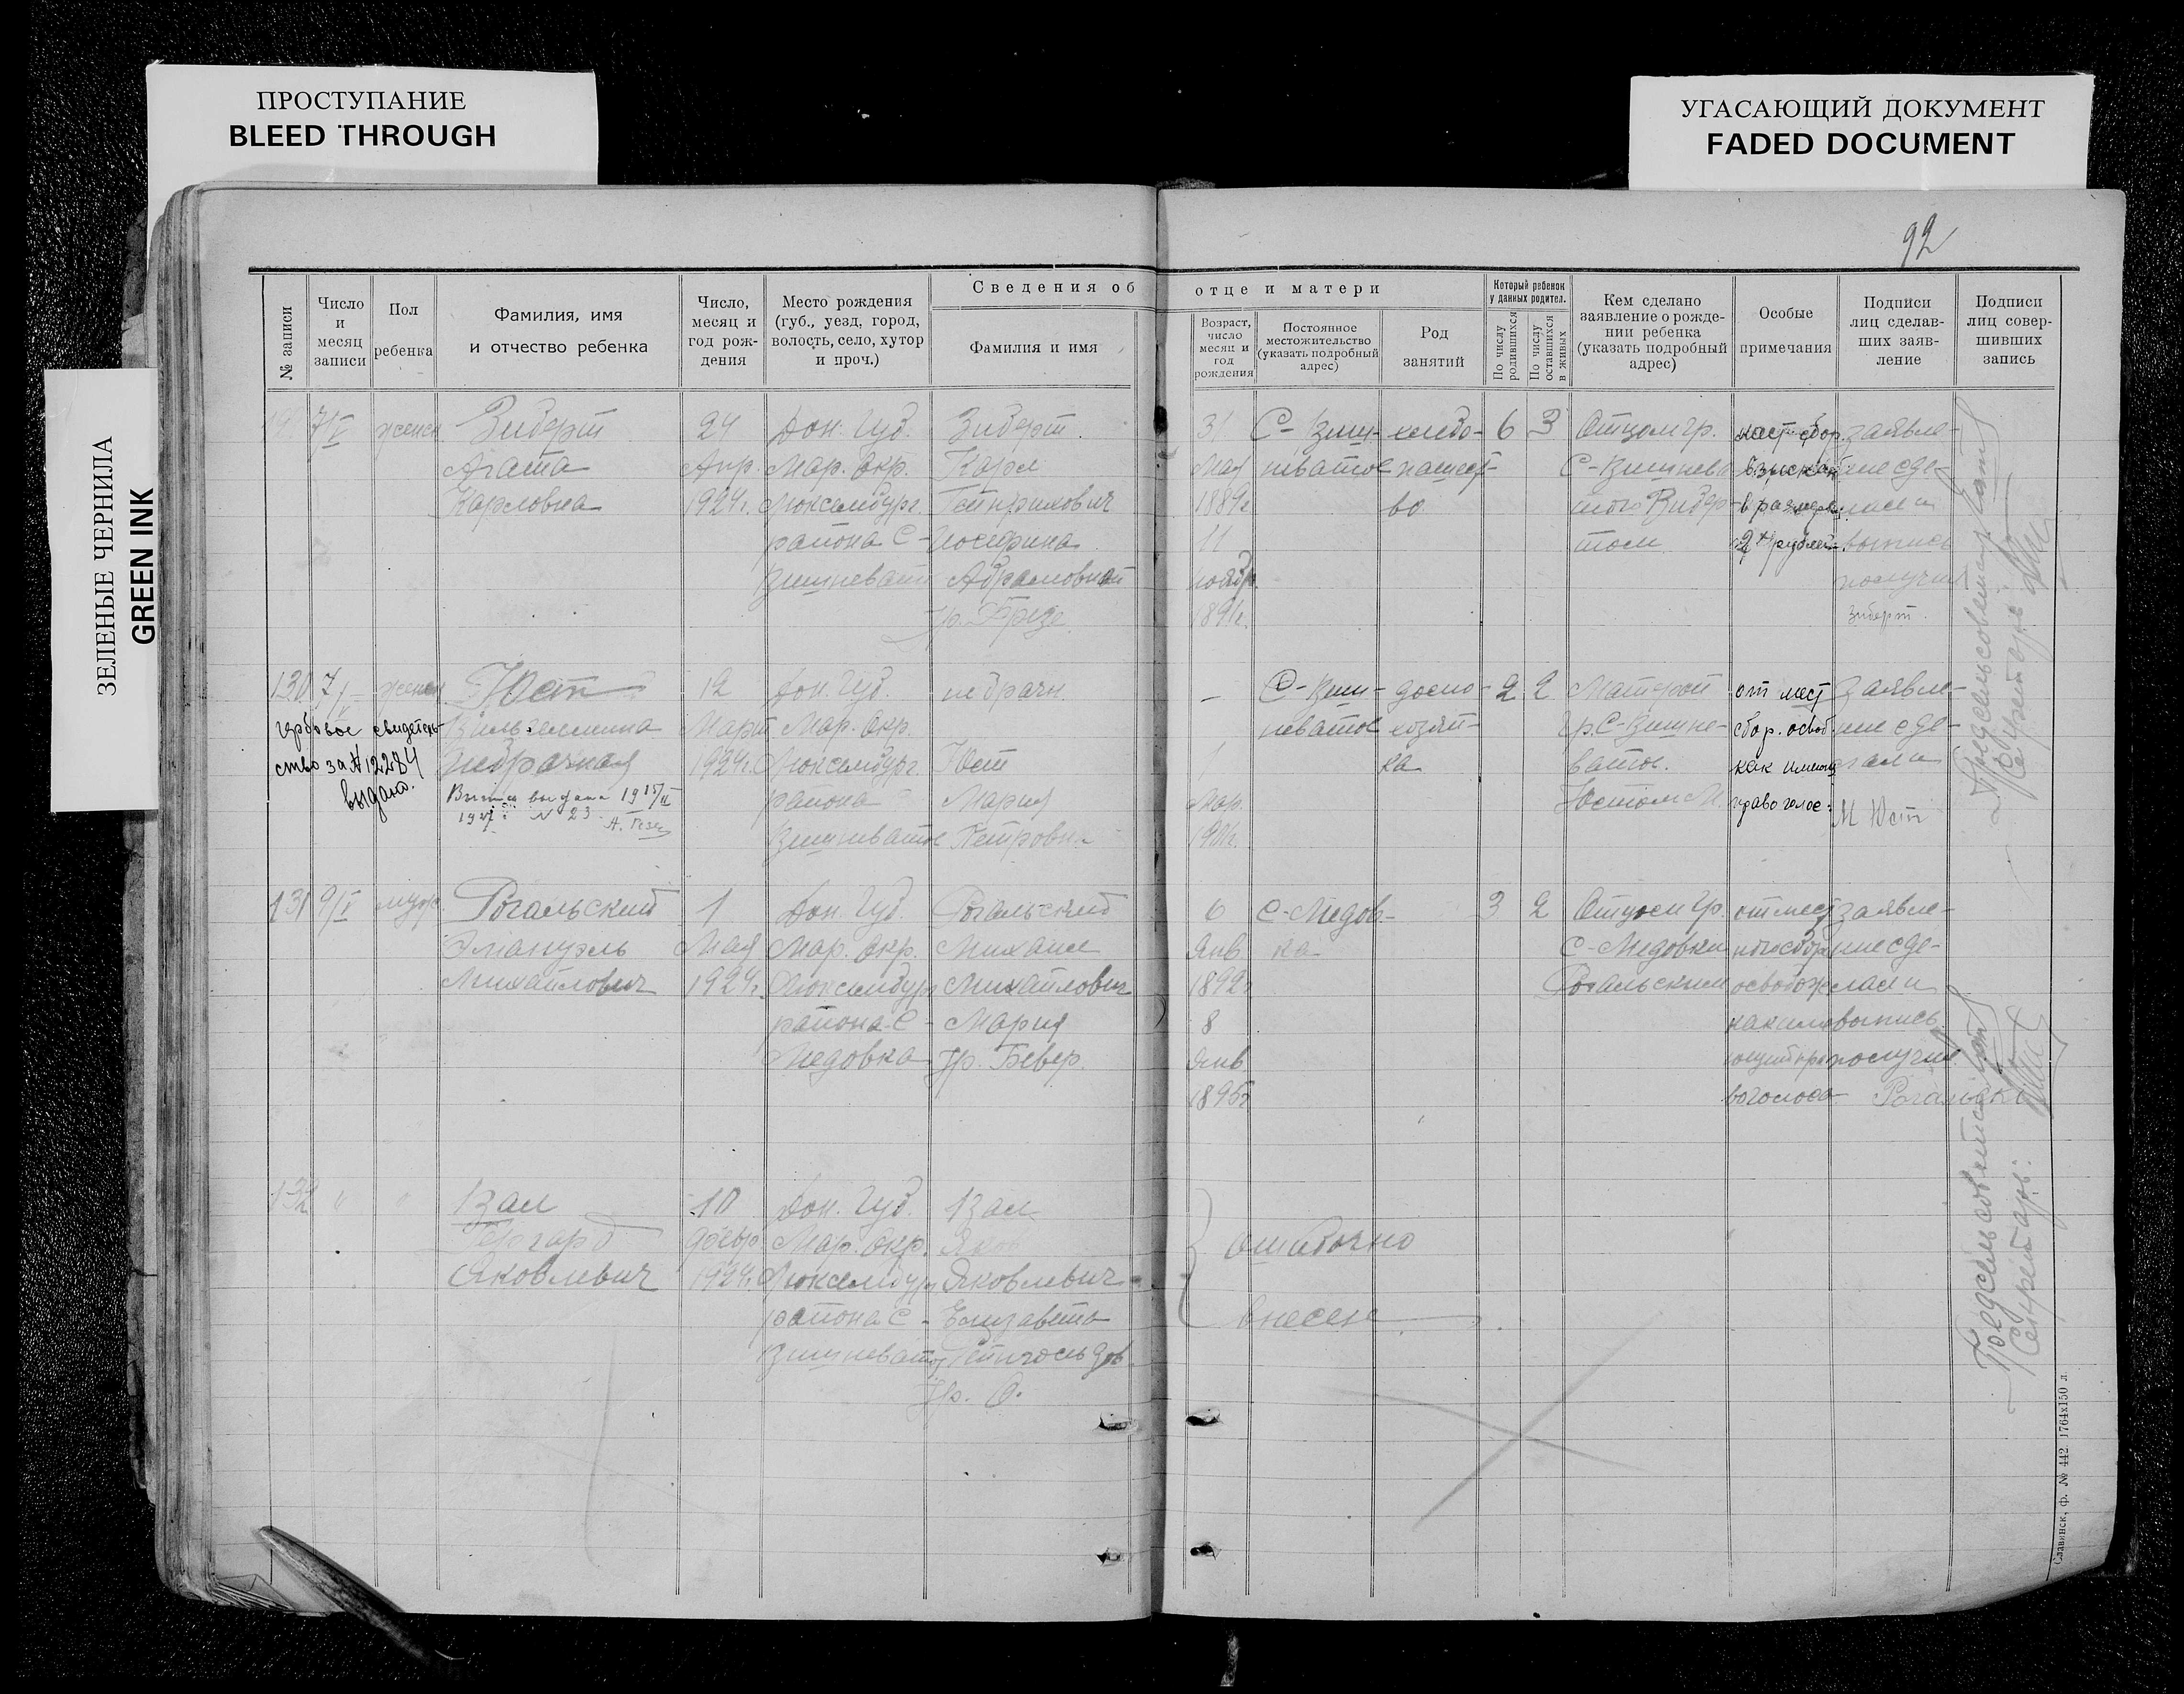 ПРОСТУПАНИЕ
BLEED THROUGH
УГАСАЮЩИЙ ДОКУМЕНТ
FADED DOCUMENT
ЗЕЛЕНЫЕ ЧЕРНИЛА
GREEN INK
92
Сведения об отце и матери
№ записи
Число
и
месяц
записи
Пол
ребенка
Фамилия, имя
и отчество ребенка
Число,
месяц и
год рож-
дения
Место рождения
(губ., уезд, город,
волость, село, хутор
и проч.)
Фамилия и имя
Возраст,
число
месяц и
год
рождения
Постоянное
местожительство
(указать подробный
адрес)
Род
занятий
Который ребенок
у данных родител.
По числу
родившихся
По числу
оставшихся
в живых
Кем сделано
заявление о рожде-
нии ребенка
(указать подробный
адрес)
Особые
примечания
Подписи
лиц сделав-
ших заяв-
ление
Подписи
лиц совер-
шивших
запись
7/V
женск.
Зиберт
Агата
Карловна
24
Апр.
1924г.
Дон. Губ.
Мар. Окр.
Люксембург.
района С-
Вишневат
Зиберт
Карл
Гейнрихович
Иосефина
Абрамовна
ур. Фризе
31
Мая
1889г
11
ноябр.
1891г.
С-Виш-
неватое
хлебо-
пашест-
во
6
3
Отцом гр.
С-Вишнева
того Зибер-
том
мест. сбор.
взыскан
в размере
2 х рублей.
заявле-
ние сде-
лал и
выпись
получил
Зиберт
130
7/V
женск
Юст
Вильгельмина
Внебрачная
12
Март
1924г.
Дон. Губ.
Мар. Окр.
Люксембург.
района
Вишневатое
не брачн.
Юст
Мария
Петровн.
Мар.
1901г.
С-Виш-
неватое
домо-
хозяй-
ка
2
2
Матерью
гр. С-Вишне-
ватое.
Юстом М.
от мест
сбор. освоб.
как имеющ
право голос.
заявле-
ние сде-
лал и
М Юст
гербовое свидетель-
ство за № 12284
выдано.
Выпись выдана 19 15/II
1927г. № 23
131
9/V
мужс.
Рогальский
Эмануэль
Михайлович
1
Мая
1924г.
Дон. Губ.
Мар. Окр.
Люксембур
района С-
Медовка
Рогальский
Михаил
Михайлович
Мария
ур. Бевер.
6
Янв.
1892г
8
Янв.
1895г
С-Медов-
ка
3
2
Отцом гр.
С-Медовки
Рогальским
от мест
ного сбор
освобож
как име
ющий пра
во голоса
заявле-
ние сде-
лал и
выпись
получил
132
"
"
Изак
Гергард
Яковлевич
10
Февр.
1924г.
Дон. Губ.
Мар. Окр.
Люксембург
района С-
Вишневатое
Изак
Яков
Яковлевич
Елизавета
ур.
Ошибочно
внесен
Предсельсовета
Секретарь:
Предсельсовета
Секретарь:
Славянск, ф. № 442. 1764х150 л.